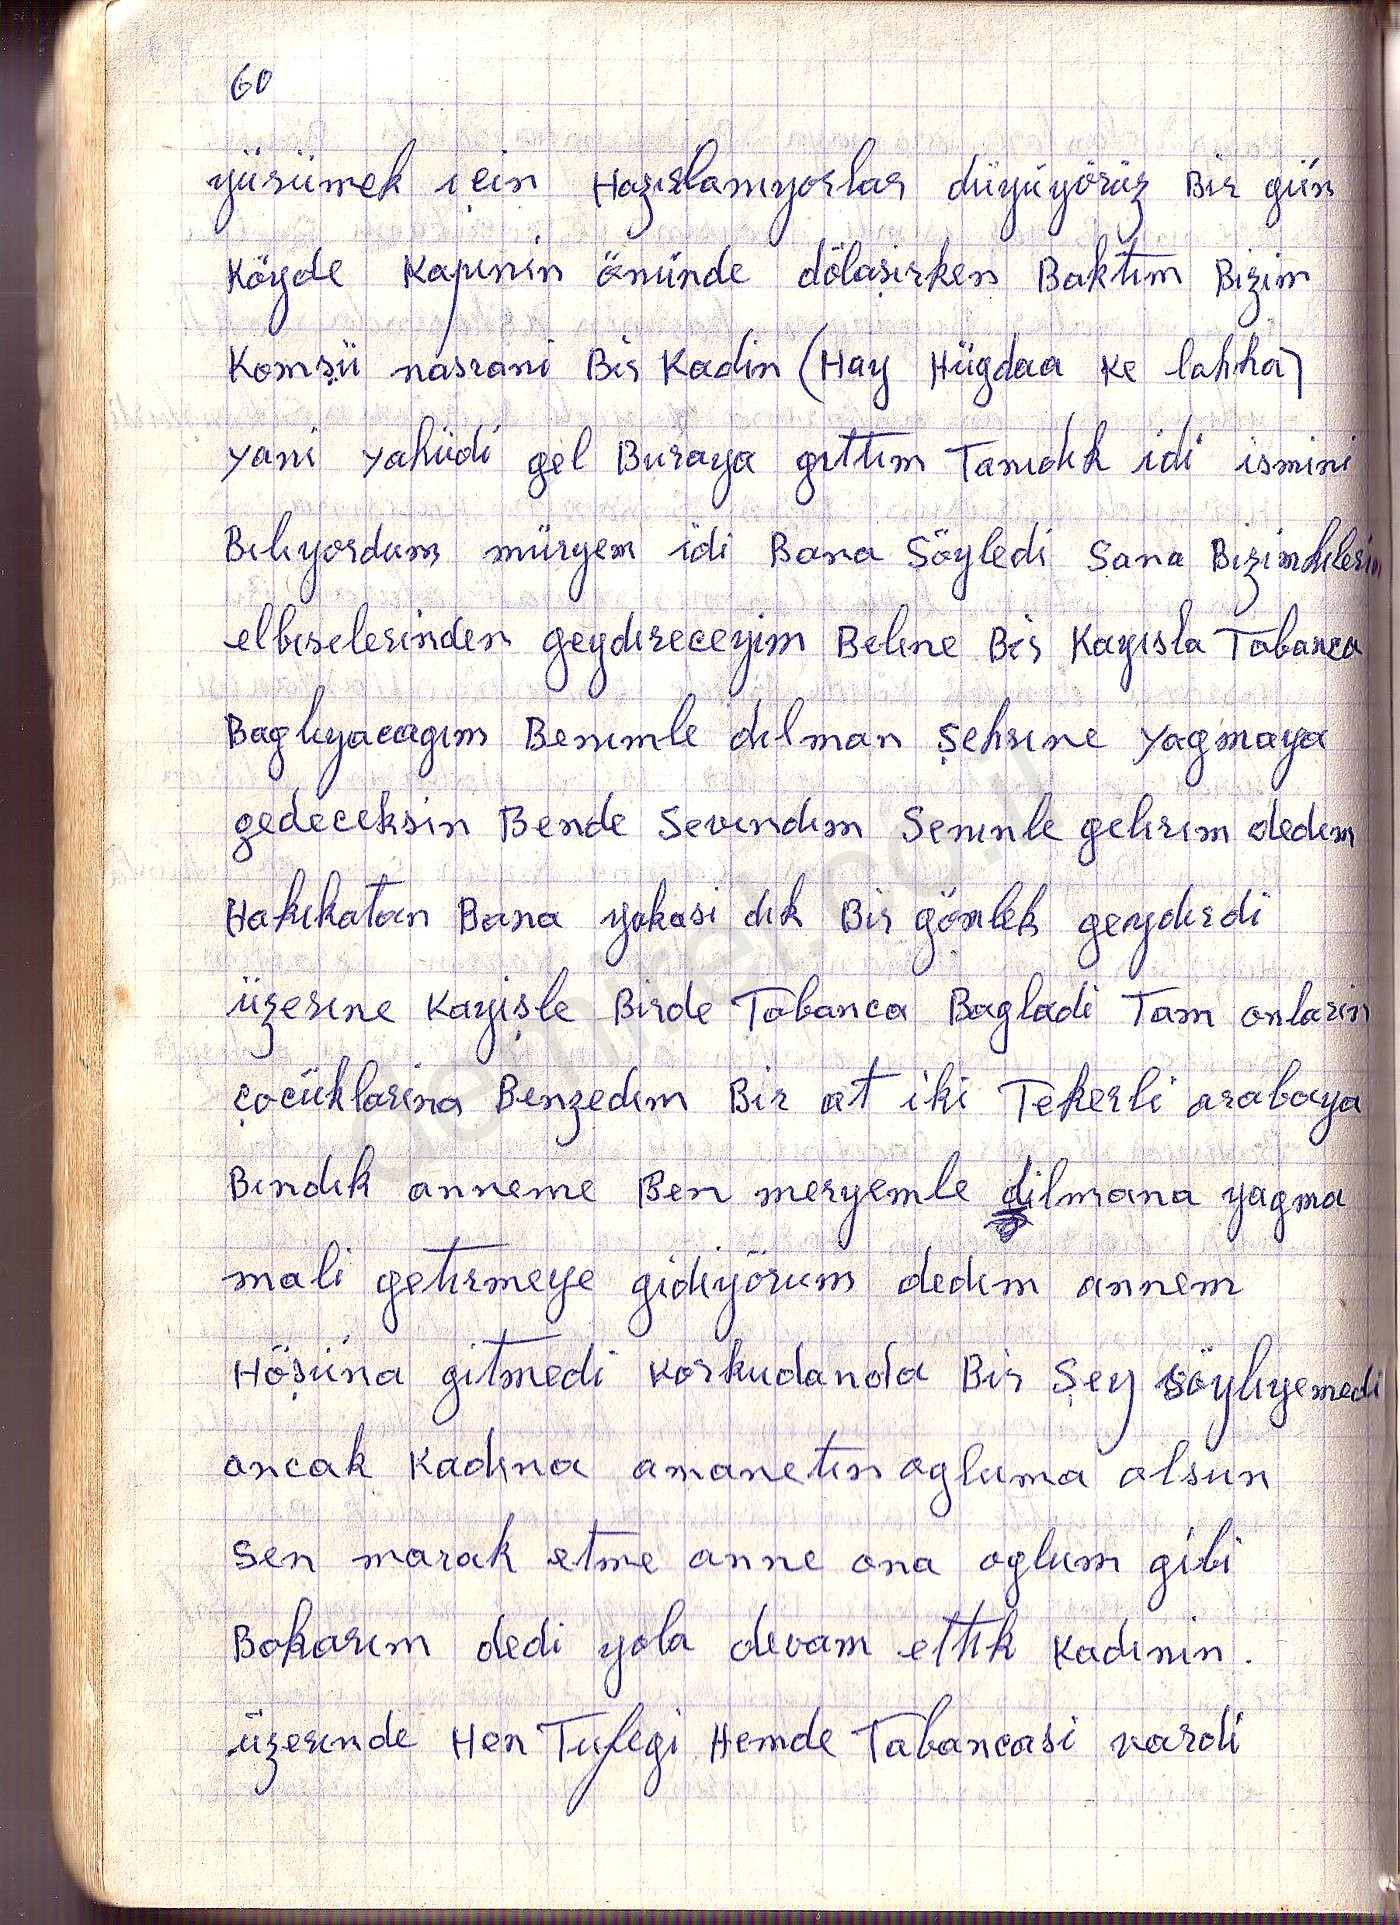 60
yürümek için Hazırlanıyorlar düyüyörüz Bir gün
Köyde Kapının önünde dölaşırken Baktım Bizim
Komşü nasrani Bir Kadin (Hay Hügdaa Ke lahha)
yani yahüdi gel Buraya gıttım Tanıdık idi ismini
Bılıyordum müryem idi Bana Söyledi Sana Bizimkılerin
elbıselerinden geydıreceyim Belıne Bir Kayısla Tabanca
Baglıyacagım Benımle dılman şehrıne yagmaya
gedeceksin Bende Sevındım Senınle gelırım dedım
Hakıkatan Bana yakasi dık Bir gömlek geydırdi
üzerıne Kayişle Birde Tabanca Bagladi Tam onlarin
çocüklarina Benzedım Bir at iki Tekerli arabaya
Bındık anneme Ben meryemle dilmana yagma
mali getırmeye gidıyörum dedım annem
Höşüna gitmedi Korkudanda Bir Şey söylıyemedi
ancak Kadına amanetın ogluma olsun
Sen marak etme anne ona oglum gibi
Bakarım dedi yola devam ettık Kadının.
üzerınde Hen Tufegi Hemde Tabancasi vardi
demirel.co.il